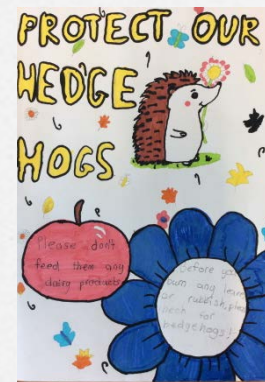 PROTECT OUR
HEDGE
HOGS
Please don't
feed them any
dairy products
Before you
burn any leaves
or rubbish, please
check for
hedgehogs!